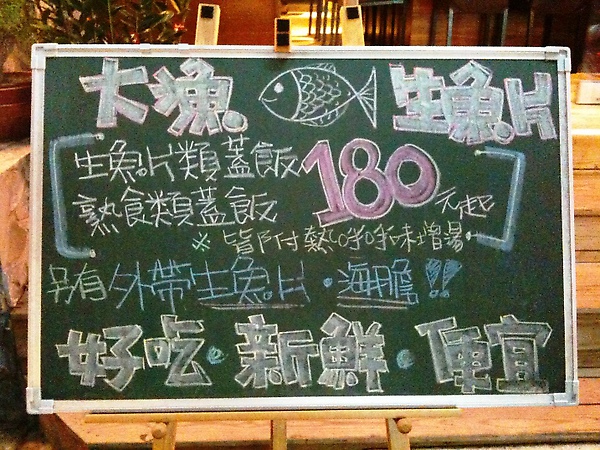 大漁 生魚片
生魚片類蓋飯
熟食類蓋飯
180元起
※皆附熱呼呼味增湯
另有外帶生魚片·海膽!!
好吃·新鮮·便宜